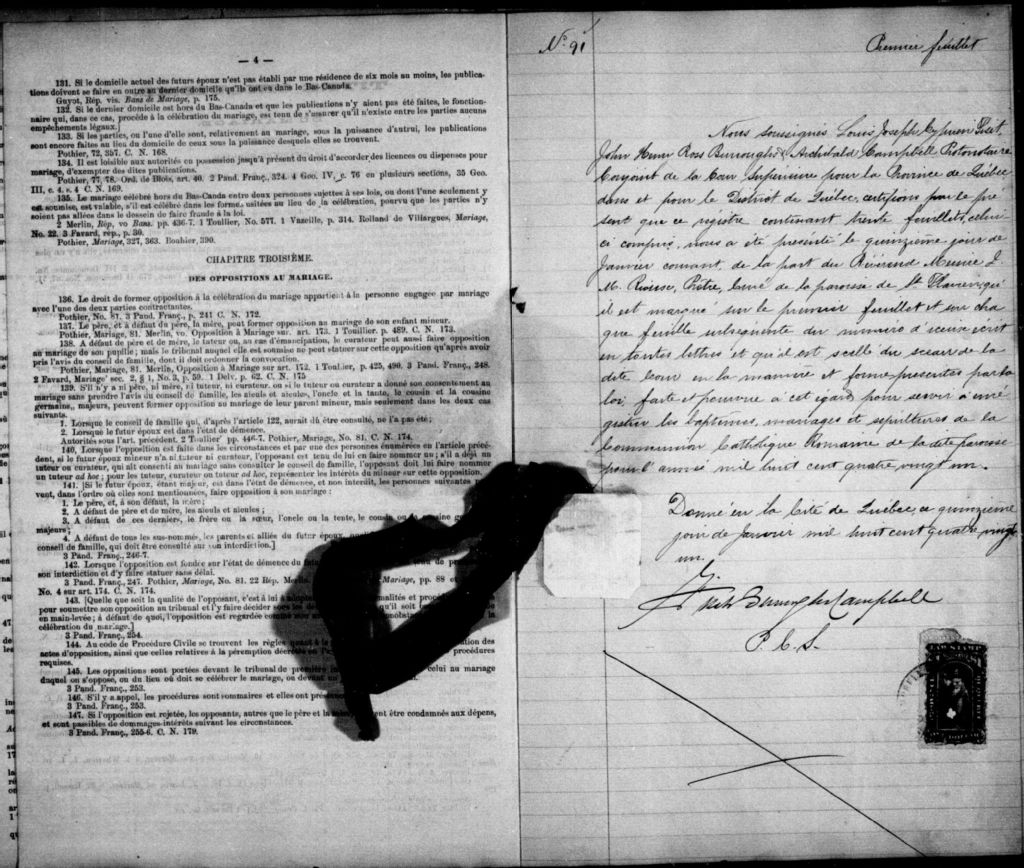 — 4 —
131. Si le domicile actuel des futurs époux n'est pas établi par une résidence de six mois au moins, les publica-
tions doivent se faire en outre au dernier domicile qu'ils ont eu dans le Bas-Canada.
Guyot, Rép. vis. Bans de Mariage, p. 175.
132. Si le dernier domicile est hors du Bas-Canada et que les publications n'y aient pas été faites, le fonction-
naire qui, dans ce cas, procède à la célébration du mariage, est tenu de s'assurer qu'il n'existe entre les parties aucuns
empêchements légaux.]
133. Si les parties, ou l'une d'elle sont, relativement au mariage, sous la puissance d'autrui, les publications
sont encore faites au lieu du domicile de ceux sous la puissance desquels elles se trouvent.
Pothier, 72, 357. C. N. 168.
134. Il est loisible aux autorités en possession jusqu'à présent du droit d'accorder des licences ou dispenses pour
mariage, d'exempter des dites publications.
Pothier, 77, 78. Ord. de Blois, art. 40. 2 Pand. Franç., 324. 4 Geo. IV, c. 76 en plusieurs sections, 35 Geo.
III, c. 4. s. 4 C. N. 169.
135. Le mariage célébré hors du Bas-Canada entre deux personnes sujettes à ses lois, ou dont l'une seulement y
est soumise, est valable, s'il est célébré dans les formes usitées au lieu de la célébration, pourvu que les parties n'y
soient pas allées dans le dessein de faire fraude à la loi.
2 Merlin, Rép, vo Bans. pp. 436-7. 1 Toullier, No. 577. 1 Vazeille, p. 314. Rolland de Villargues, Mariage,
No. 22. 3 Favard, rép., p. 30.
Pothier, Mariage, 327, 363. Bouhier, 390.
CHAPITRE TROISIÈME.
DES OPPOSITIONS AU MARIAGE.
136. Le droit de former opposition à la célébration du mariage appartient à la personne engagée par mariage
avec l'une des deux parties contractantes.
Pothier, No. 81. 3 Pand. Franç., p. 241 C. N. 172.
137. Le père, et à défaut du père, la mère, peut former opposition au mariage de son enfant mineur.
Pothier, Mariage, 81. Merlin, vo. Opposition à Mariage sur. art. 173. 1 Touillier. p. 489. C. N. 173.
138. A défaut de père et de mère, le tuteur ou, au cas d'émancipation, le curateur peut aussi faire opposition
au mariage de son pupille; mais le tribunal auquel elle est soumise ne peut statuer sur cette opposition qu'après avoir
pris l'avis du conseil de famille, dont il doit ordonner la convocation.
Pothier, Mariage, 81. Merlin, Opposition à Mariage sur art. 172. 1 Toullier, p. 425, 490. 3 Pand. Franç., 248.
2 Favard, Mariage sec. 2, § 1, No. 3, p. 59. 1 Delv. p. 62. C. N. 175
139. S'il n'y a ni père, ni mère, ni tuteur, ni curateur, ou si le tuteur ou curateur a donné son consentement au
mariage sans prendre l'avis du conseil de famille, les aïeuls et aïeules, l'oncle et la tante, le cousin et la cousine
germains, majeurs, peuvent former opposition au mariage de leur parent mineur, mais seulement dans les deux cas
suivants.
1. Lorsque le conseil de famille qui, d'après l'article 122, aurait dû être consulté, ne l'a pas été;
2. Lorsque le futur époux est dans l'état de démence.
Autorités sous l'art. précédent. 2 Toullier pp. 446-7. Pothier, Mariage, No. 81. C. N. 174.
140. Lorsque l'opposition est faite dans les circonstances et par une des personnes énumérées en l'article précé-
dent, si le futur époux mineur n'a ni tuteur ni curateur, l'opposant est tenu de lui en faire nommer un; s'il a déjà un
tuteur ou curateur, qui ait consenti au mariage sans consulter le conseil de famille, l'opposant doit lui faire nommer
un tuteur ad hoc; pour les tuteur, curateur ou tuteur ad hoc, représenter les intérêts du mineur sur cette opposition.
141. [Si le futur époux, étant majeur, est dans l'état de démence, et non interdit, les personnes suivantes
vent, dans l'ordre où elles sont mentionnées, faire opposition à son mariage:
1. Le père, et, à son défaut, la mère;
2. A défaut de père et de mère, les aïeuls et aïeules;
3. A défaut de ces derniers, le frère ou la sœur, l'oncle ou la tante, le cousin ou
majeurs;
4. A défaut de tous les sus-nommés, les parents et alliés du futur époux,
conseil de famille, qui doit être consulté sur son interdiction.]
3 Pand. Franç., 246-7.
142. Lorsque l'opposition est fondée sur l'état de démence du fu
son interdiction et d'y faire statuer sans délai.
3 Pand. Franç., 247. Pothier, Mariage, No. 81. 22 Rép. Merlin Mariage, pp. 88 et
No. 4 sur art. 174. C. N. 174.
143. [Quelle que soit la qualité de l'opposant, c'est à lui à
pour soumettre son opposition au tribunal et l'y faire décider
en main-levée; à défaut de quoi, l'opposition est regardée comme
célébration du mariage.]
3 Pand. Franç., 254.
144. Au code de Procédure Civile se trouvent les règles
actes d'opposition, ainsi que celles relatives à la péremption décrétée procédures
requises.
145. Les oppositions sont portées devant le tribunal de première celui au mariage
duquel on s'oppose, ou du lieu où doit se célébrer le mariage, ou devant un
3 Pand. Franç., 253.
146. S'il y a appel, les procédures sont sommaires et elles ont
3 Pand. Franç., 253.
147. Si l'opposition est rejetée, les opposants, autres que le père et la ent être condamnés aux dépens,
et sont passibles de dommages-intérêts suivant les circonstances.
3 Pand. Franç., 255-6. C. N. 179.
No. 91
Premier feuillet
Nous soussignés Louis Joseph Cyprien Fiset,
John Henry Ross Burroughs & Archibald Campbell Protonotaire
Conjoint de la Cour Supérieure pour la Province de Québec
dans et pour le District de Québec, certifions par le pré
sent que ce régistre contenant trente feuillets, celui
ci compris, nous a été présenté le quinzième jour de
Janvier courant, de la part du Révérend Messire J.
M. Rioux, Prêtre, Curé de la paroisse de St Flavien, qu'
il est marqué sur le premier feuillet et sur cha
que feuille subséquente du numéro d'icelui écrit
en toutes lettres et qu'il est scellé du sceau de la
dite Cour en la manière et forme prescrites par la
loi, faite et pourvue à cet égard pour servir à enré
gistrer les baptêmes, mariages et sépultures de la
Communion Catholique Romaine de la dite paroisse
pour l'année mil huit cent quatre vingt un.
Donné en la Cité de Québec, ce quinzième
jour de Janvier mil huit cent quatre vingt
un.
Fiset Burroughs Campbell
P. C. S.
LAW STAMP